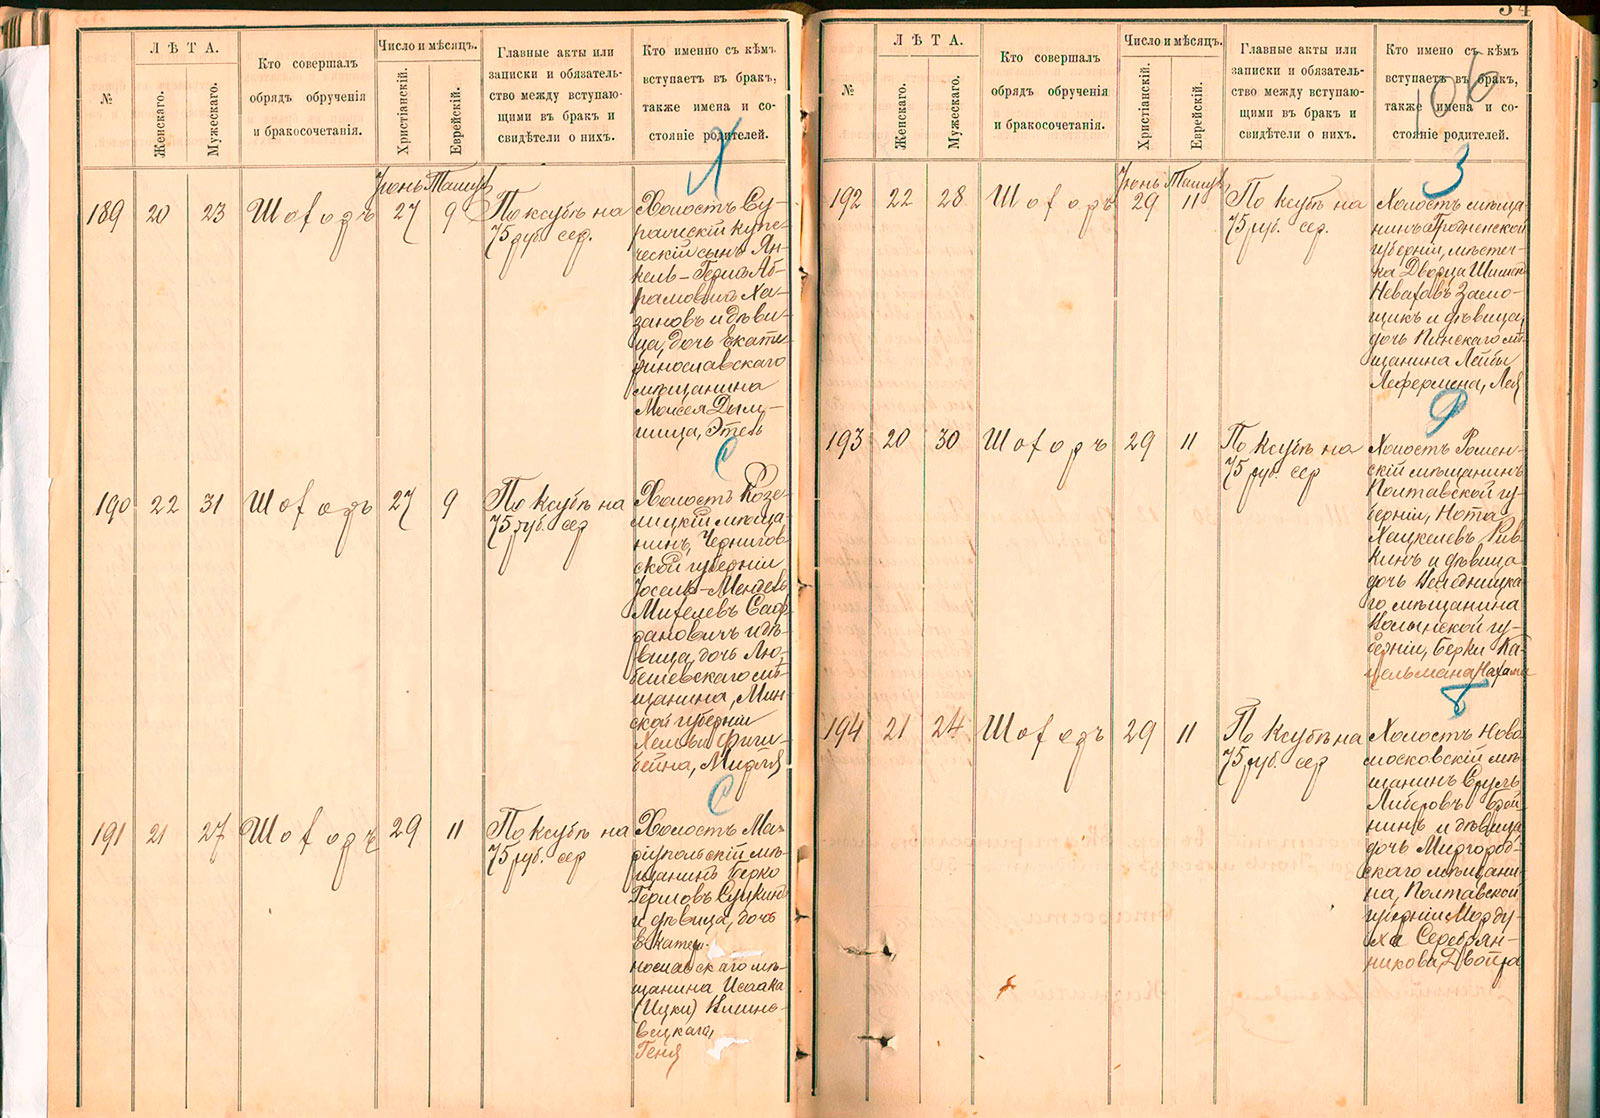 №
ЛѢТА.
Женскаго.
Мужескаго.
Кто совершалъ
обрядъ обрученія
и бракосочетанія.
Число и мѣсяцъ.
Христіанскій.
Еврейскій.
Главные акты или
записки и обязатель-
ство между вступаю-
щими въ бракъ и
свидѣтели о нихъ.
Кто именно съ кѣмъ
вступаетъ въ бракъ,
также имена и со-
стояніе родителей.
Х
Іюнь Тамуз
189 20 23 Шофодъ 27 9
По ксубѣ на
75 руб. сер.
Холостъ Су-
ражскій купе-
ческій сынъ Ян-
кель-Герцъ Аб-
рамовичъ Ха-
зановъ и дѣви-
ца, дочь Екате-
ринославскаго
мѣщанина
Моисея Дым-
шица, Этель
С
190 22 31 Шофодъ 27 9
По Ксубѣ на
75 руб. сер
Холостъ Козе-
лицкій мѣща-
нинъ, Чернигов-
ской губерніи
Іосель-Мендель
Михелевъ
и дѣ-
вица, дочь Лю-
бешевскаго мѣ-
щанина, Мин-
ской губерніи
С
191 21 27 Шофодъ 29 11
По Ксубѣ на
75 руб. сер
Холостъ Ма-
ріупольскій мѣ-
щанинъ Берко
Гершовъ Суцкинъ
и дѣвица, дочь
Екатери-
нославскаго мѣ-
щанина Исаака
(Ицки) Клино-
вецкаго,
Геня
34
106
№
ЛѢТА.
Женскаго.
Мужескаго.
Кто совершалъ
обрядъ обрученія
и бракосочетанія.
Число и мѣсяцъ.
Христіанскій.
Еврейскій.
Главные акты или
записки и обязатель-
ство между вступаю-
щими въ бракъ и
свидѣтели о нихъ.
Кто имено съ кѣмъ
вступаетъ въ бракъ,
также имена и со-
стояніе родителей.
З
Іюнь Тамуз
192 22 28 Шофодъ 29 11
По Ксубѣ на
75 руб. сер.
Холостъ мѣща-
нинъ Гродненской
губерніи, мѣстеч-
ка Дворца Шимен
Неваховъ Засмо-
щикъ и дѣвица,
дочь Пинскаго мѣ-
щанина Лейбы
Лефермена, Лея
Р
193 20 30 Шофодъ 29 11
По Ксубѣ на
75 руб. сер
Холостъ Ромен-
скій мѣщанинъ
Полтавской гу-
берніи, Нота
Хацкелевъ Рив-
кинъ и дѣвица
дочь
го мѣщанина
Волынской гу-
берніи, Берки Ка-
цельмана Нахама
Б
194 21 24 Шофодъ 29 11
По Ксубѣ на
75 руб. сер
Холостъ Ново-
московскій мѣ-
щанинъ Сруль
Лейбровъ Брой-
нинъ и дѣвица
дочь Миргород-
скаго мѣщани-
на, Полтавской
губерніи Морду-
ха Серебрян-
никова, Двойра